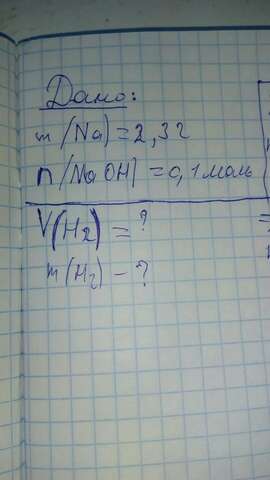 Дано:
m(Na)=2,3г
n(NaOH)=0,1моль
V(H2)=?
m(H2)-?